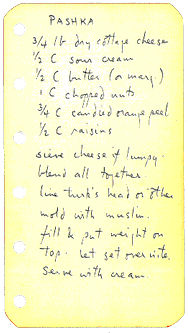 PASHKA
3/4 lb dry cottage cheese
1/2 C sour cream
1/2 C butter (or marg.)
1 C chopped nuts
3/4 C candied orange peel
1/2 C raisins
sieve cheese if lumpy.
blend all together.
line turk's head or other
mold with muslin.
fill & put weight on
top. Let set overnite.
Serve with cream.